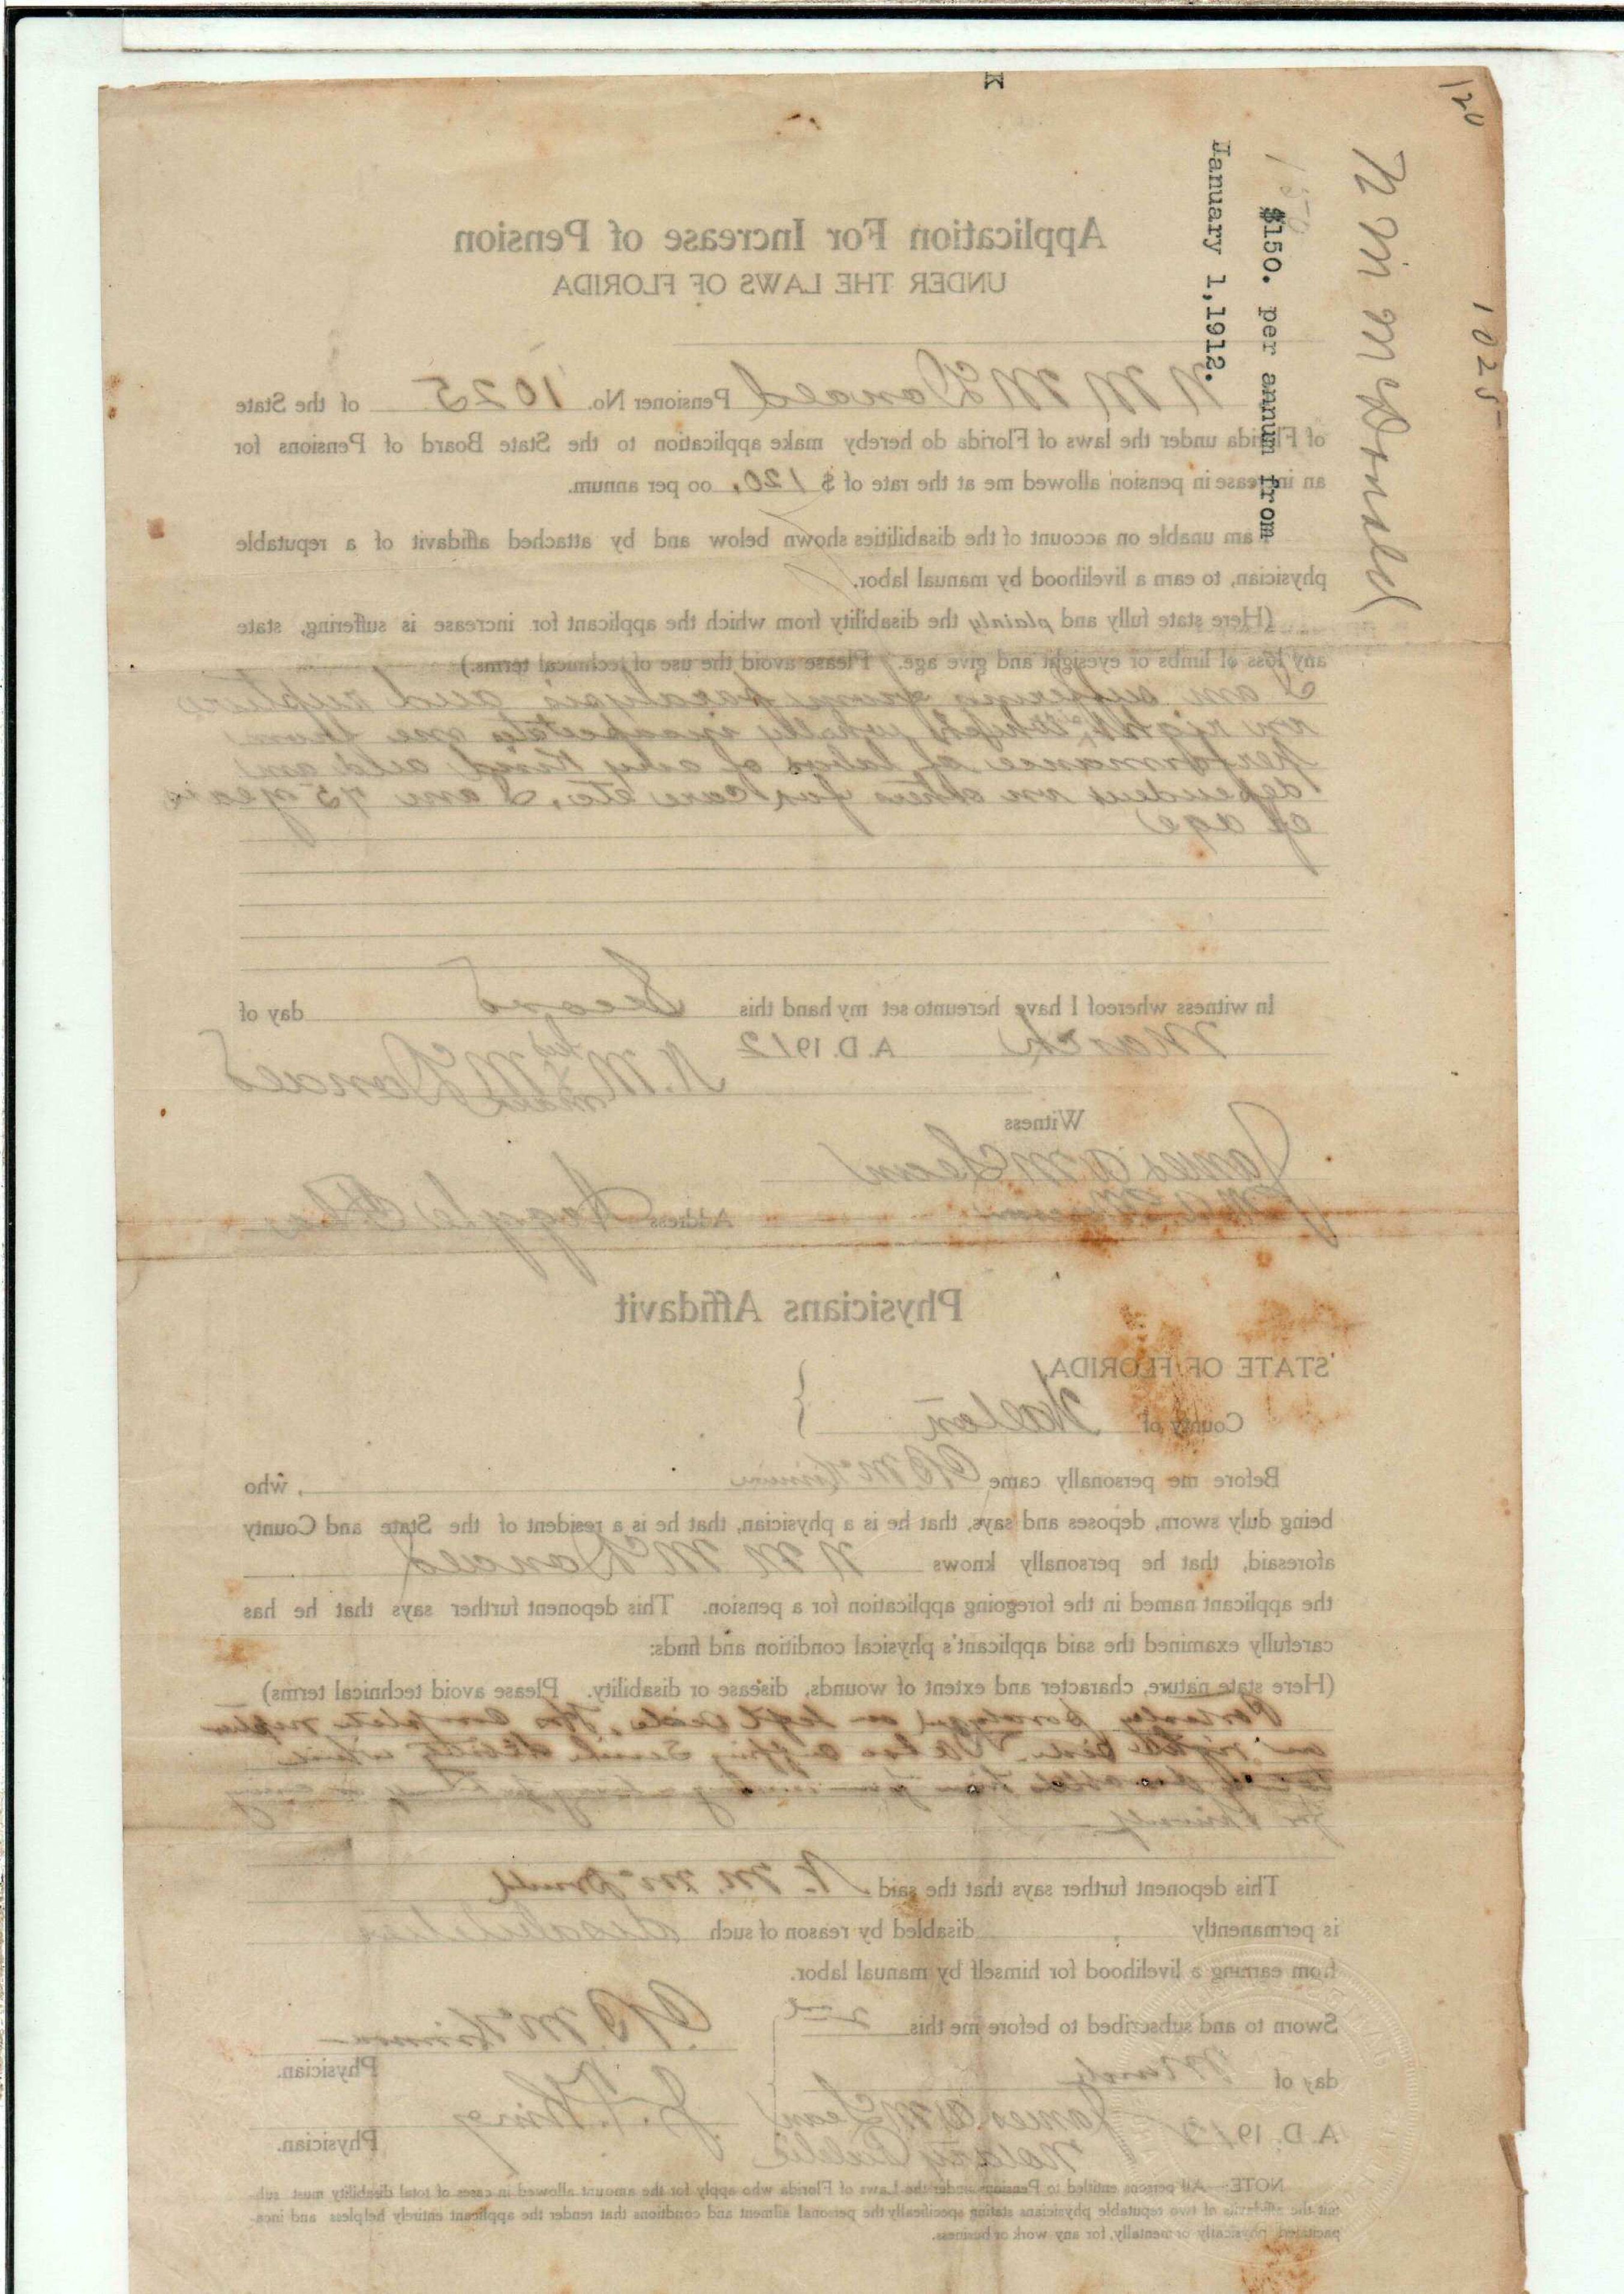 120
1025
N M McDonald
$150. per annum from
January 1,1912.
K
Application For Increase of Pension
UNDER THE LAWS OF FLORIDA
N M McDonald Pensioner No. 1025 of the State
of Florida under the laws of Florida do hereby make application to the State Board of Pensions for
an increase in pension allowed me at the rate of $ 120. oo per annum.
I am unable on account of the disabilities shown below and by attached affidavit of a reputable
physician, to earn a livelihood by manual labor.
(Here state fully and plainly the disability from which the applicant for increase is suffering, state
any loss of limbs or eyesight and give age. Please avoid the use of technical terms.)
I am suffering from paralysis and rupture
on right, which wholly incapacitates me from
performance of labor of any kind and am
dependent on others for care etc, I am 75 years
of age
In witness whereof I have hereunto set my hand this Second day of
March A. D. 1912
N. M. his x mark McDonald
Witness
James A McLean
Address Argyle Fla
Physicians Affidavit
STATE OF FLORIDA,
County of Walton }
Before me personally came McKinnon , who
being duly sworn, deposes and says, that he is a physician, that he is a resident of the State and County
aforesaid, that he personally knows N M McDonald
the applicant named in the foregoing application for a pension. This deponent further says that he has
carefully examined the said applicant's physical condition and finds:
(Here state nature, character and extent of wounds, disease or disability. Please avoid technical terms)
Partially paralyzed on left side, Has complete rupture
on right side.
for himself
This deponent further says that the said N. M. McDonald
is permanently disabled by reason of such disabilities
from earning a livelihood for himself by manual labor.
Sworn to and subscribed to before me this 2nd
day of March
A. D. 1912
James A McLean
Notary Public
McKinnon
Physician.
Physician.
NOTE:—All persons entitled to Pensions under the Laws of Florida who apply for the amount allowed in cases of total disability must sub-
mit the affidavits of two reputable physicians stating specifically the personal ailment and conditions that render the applicant entirely helpless and inca-
pacitated, physically or mentally, for any work or business.